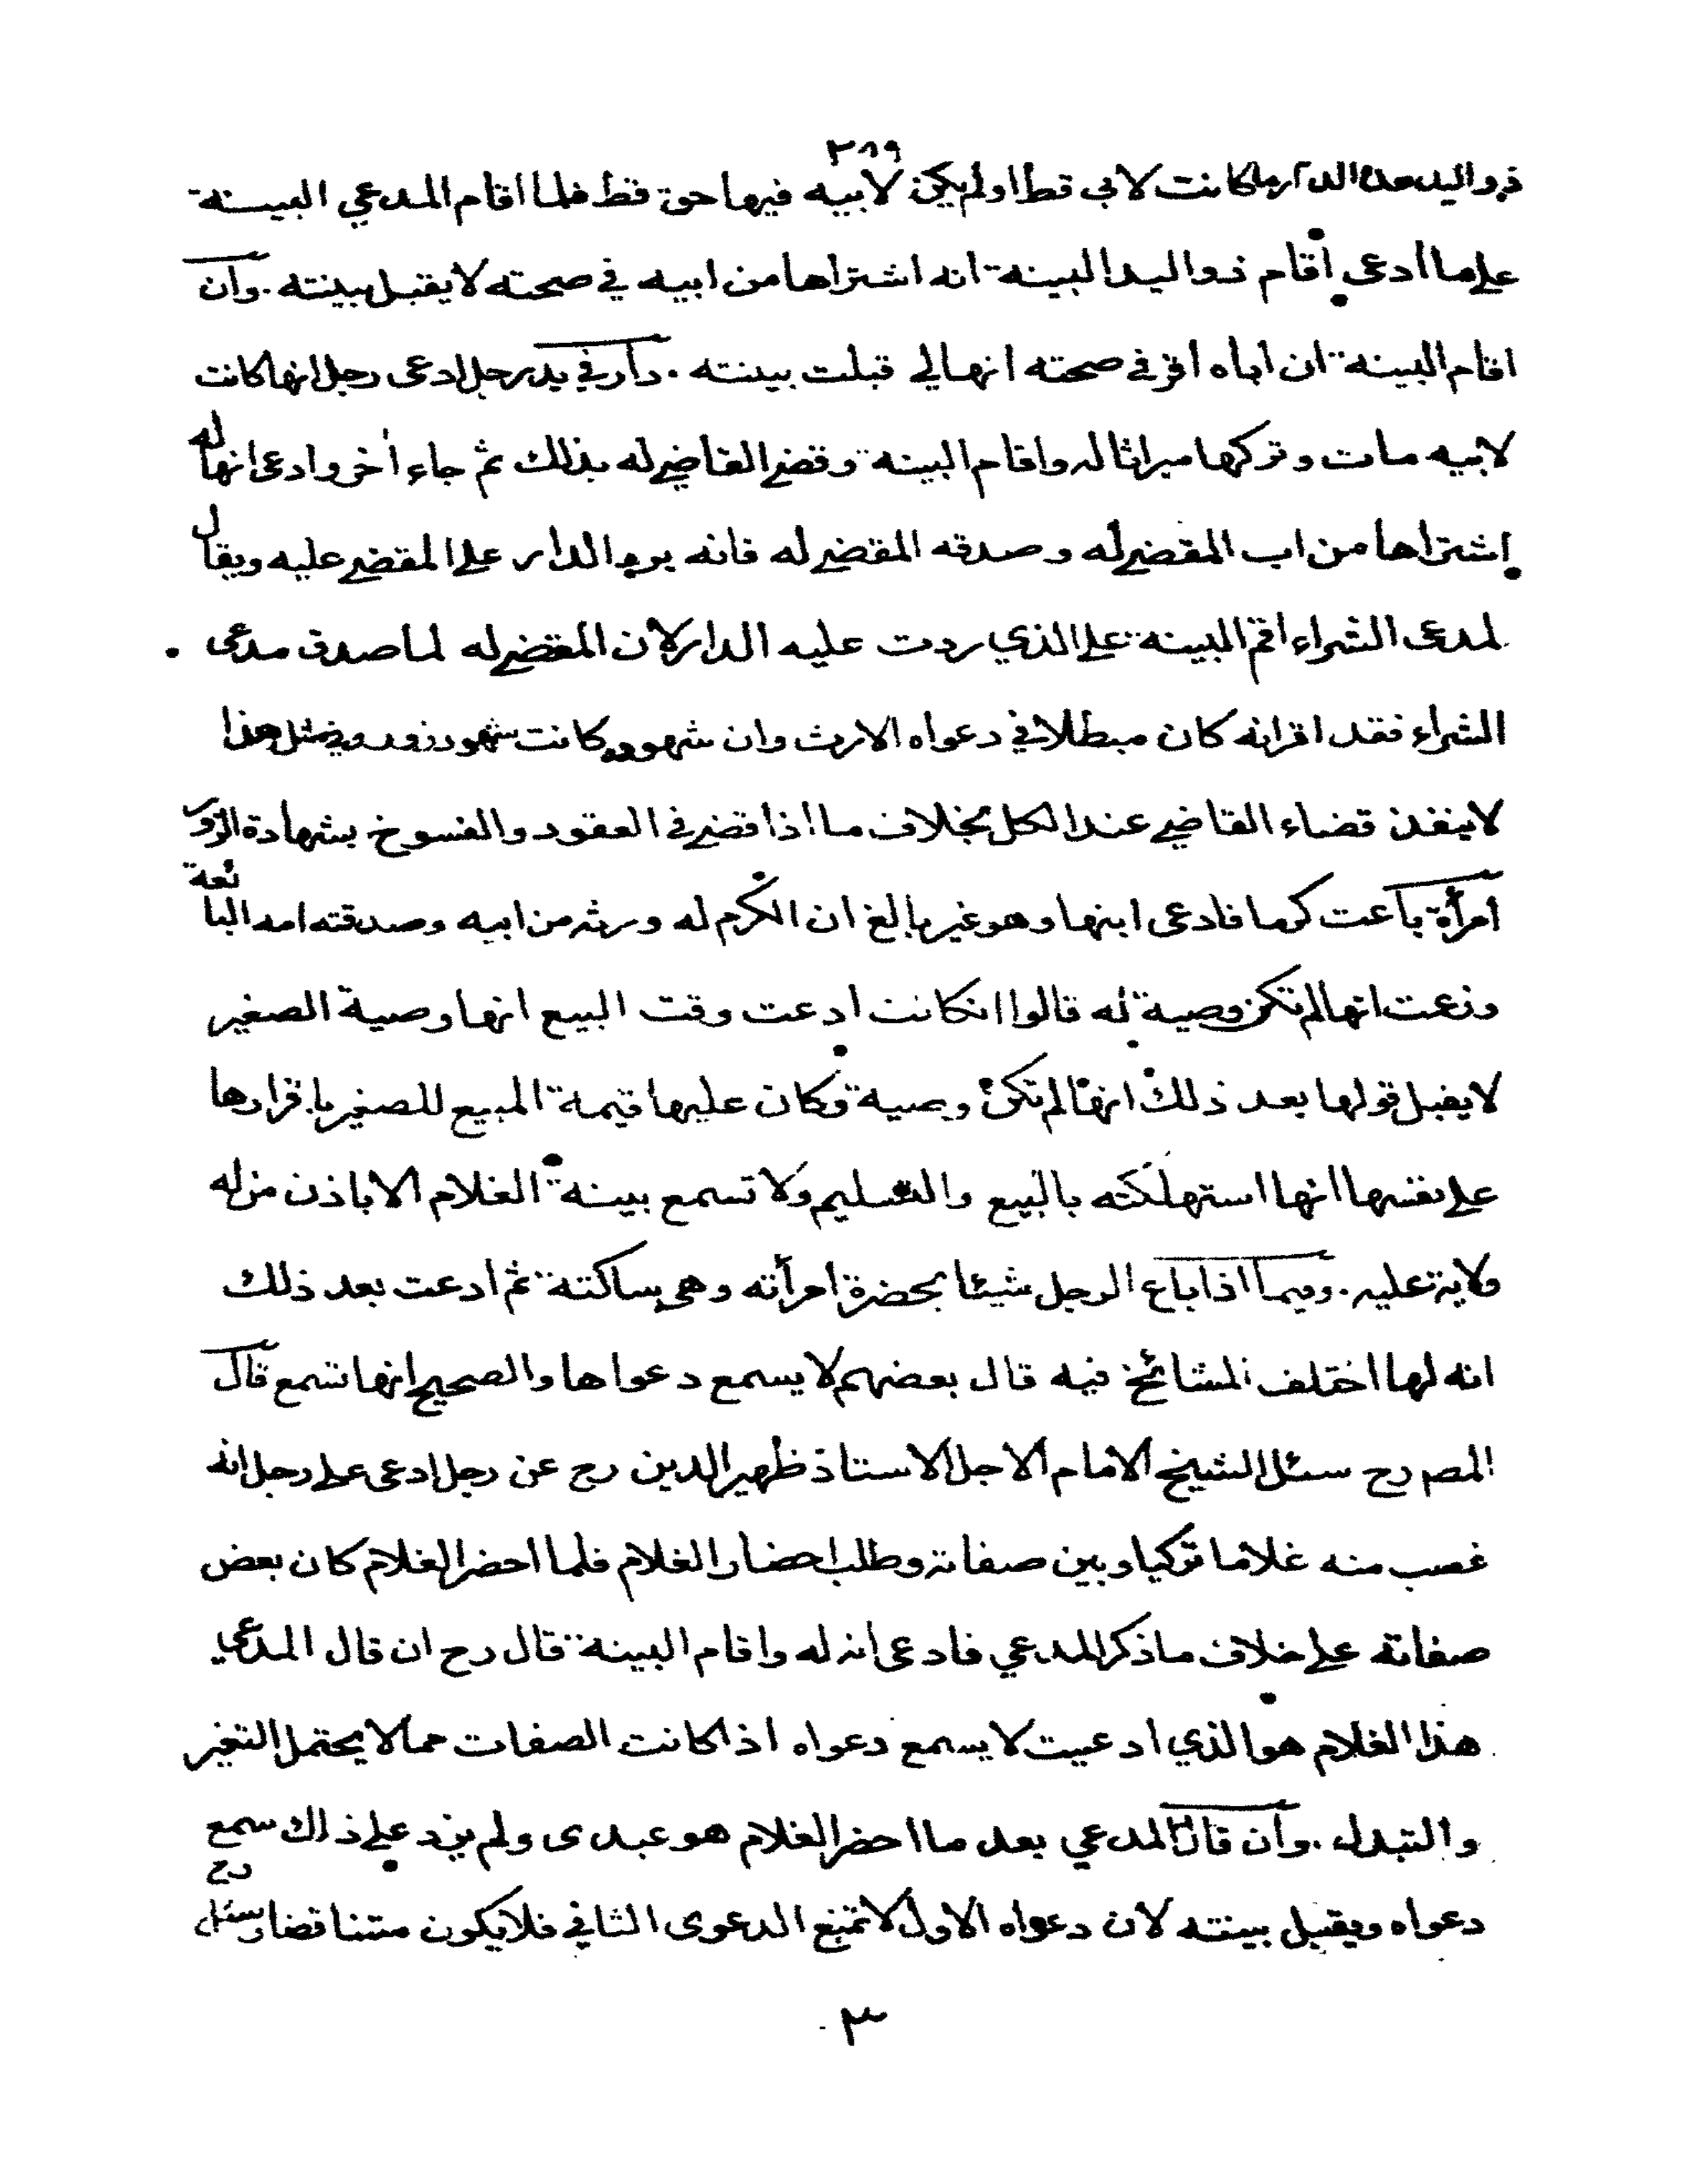 ٣٨٩
ذو اليد هذه الدار ما كانت لابي قط اولم يكن لابيه فيها حق قط فلما اقام المدعي البينة
على ما ادعى اقام ذو اليد البينة انه اشتراها من ابيه في صحته لا يقبل بينته . وان
اقام البينة ان اباه اقر في صحته انها لي قبلت بينته . دار في يد رجل ادعى رجل انها كانت
لابيه مات و تركها ميراثا له واقام البينة وقضى القاضي له بذلك ثم جاء اخر وادعى انها له
اشتراها من اب المقضى له وصدقه المقضى له فانه يرد الدار على المقضى عليه ويقال
لمدعى الشراء اقم البينة على الذي ردت عليه الدار لان المقضى له لما صدق مدعى .
الشراء فقد اقر انه كان مبطلا في دعواه الارث وان شهوده كانت شهود زور وفي مثل هذا
لا ينفذ قضاء القاضي عند الكل بخلاف ما اذا قضى في العقود والفسوخ بشهادة الزور
امرأة باعت كرما فادعى ابنها وهو غير بالغ ان الكرم له ورثه من ابيه وصدقته امه البائعة
وزعمت انها لم تكن وصية له قالوا ان كانت ادعت وقت البيع انها وصية الصغير
لا يقبل قولها بعد ذلك انها لم تكن وصية وكان عليها قيمة المبيع للصغير باقرارها
على نفسها انها استهلكته بالبيع والتسليم ولا تسمع بينة الغلام الا باذن من له
ولاية عليه . وفيما اذا باع الرجل شيئا بحضرة امرأته وهي ساكتة ثم ادعت بعد ذلك
انه لها اختلف المشائخ فيه قال بعضهم لا يسمع دعواها والصحيح انها تسمع قال
المص رح سئل الشيخ الامام الاجل الاستاذ ظهير الدين رح عن رجل ادعى على رجل انه
غصب منه غلاما تركيا وبين صفاته وطلب احضار الغلام فلما احضر الغلام كان بعض
صفاته على خلاف ما ذكر المدعي فادعى انه له واقام البينة قال رح ان قال المدعي
هذا الغلام هو الذي ادعيت لا يسمع دعواه اذا كانت الصفات مما لا يحتمل التغير
والتبدل . وان قال المدعي بعد ما احضر الغلام هو عبدى ولم يزد على ذلك سمع
دعواه ويقبل بينته لان دعواه الاول لا تمنع الدعوى الثاني فلا يكون متناقضا وسئل رح
٣